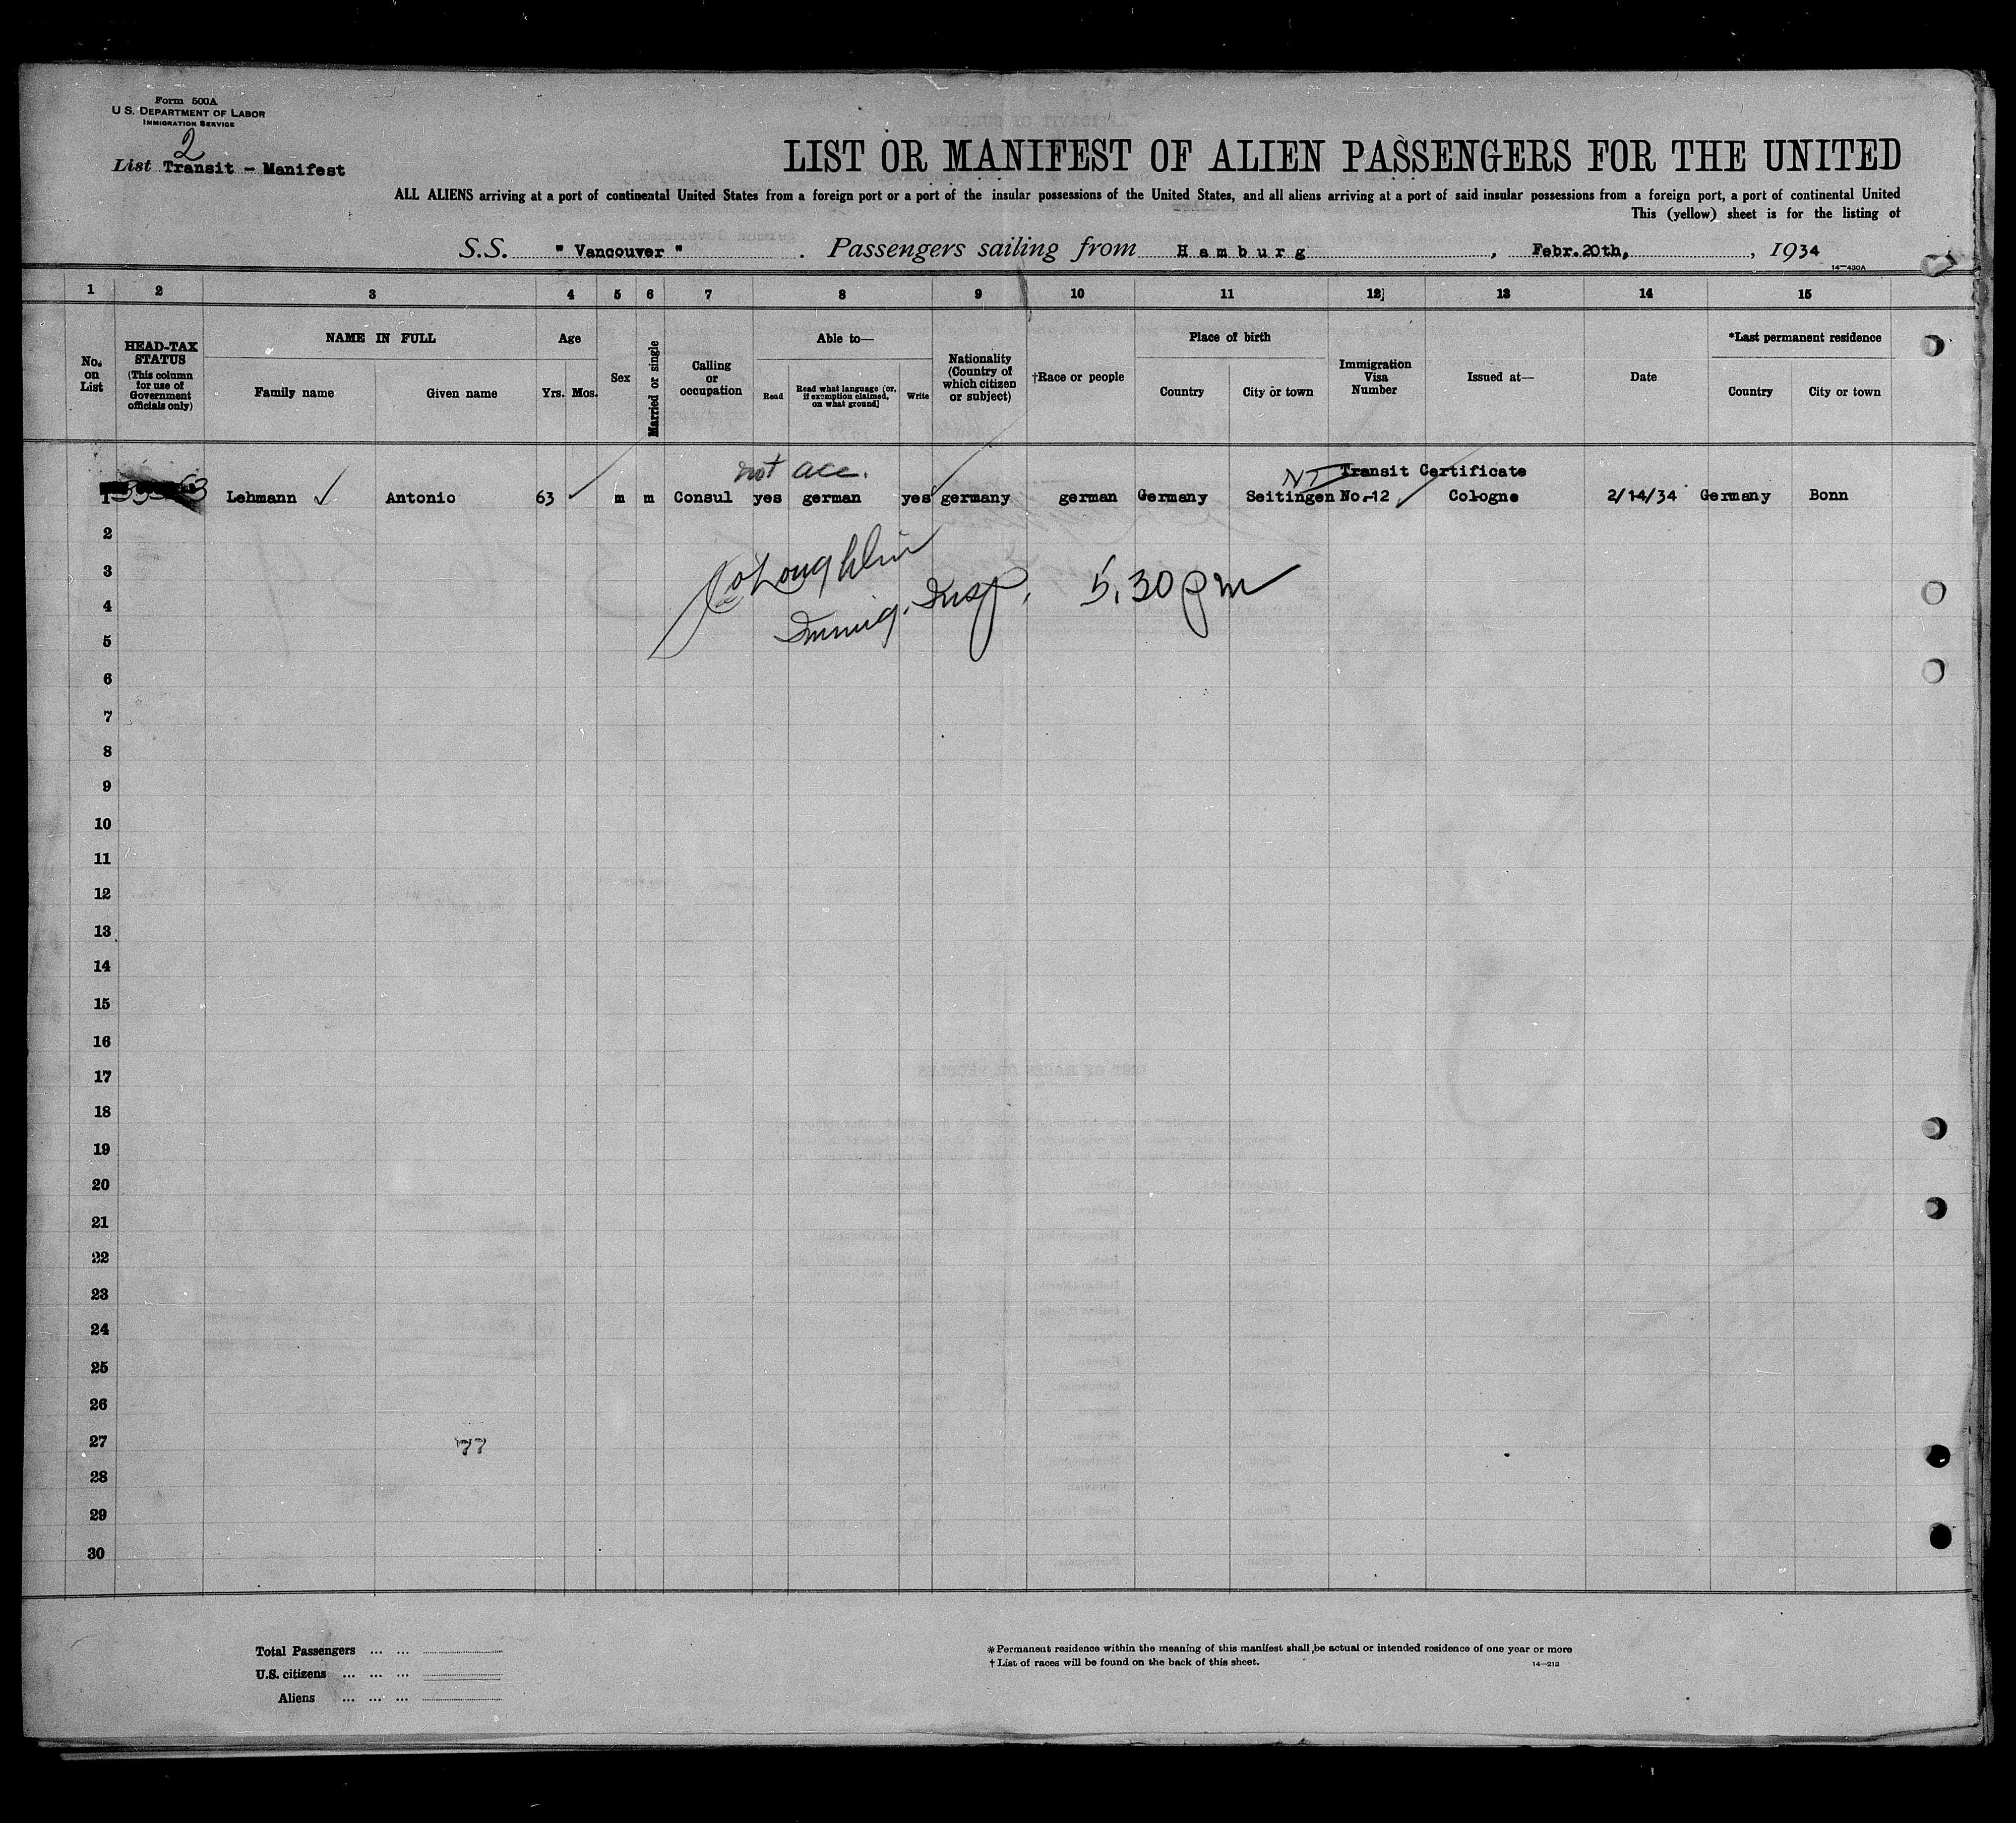 Form 500A
U S. DEPARTMENT OF LABOR
IMMIGRATION SERVICE
2
List Transit - Manifest
LIST OR MANIFEST OF ALIEN PASSENGERS FOR THE UNITED
ALL ALIENS arriving at a port of continental United States from a foreign port or a port of the insular possessions of the United States, and all aliens arriving at a port of said insular possessions from a foreign port, a port of continental United
This (yellow) sheet is for the listing of
S.S. " Vancouver " . Passengers sailing from Hamburg , Febr.20th, , 1934
14—430A
1 2 3 4 5 6 7 8 9 10 11 12 13 14 15
No. on List
HEAD-TAX STATUS (This column for use of Government officials only)
NAME IN FULL
Family name Given name
Age
Yrs. Mos.
Sex
Married or single
Calling or occupation
Able to—
Read Read what language (or, if exemption claimed, on what ground) Write
Nationality (Country of which citizen or subject)
†Race or people
Place of birth
Country City or town
Immigration Visa Number
Issued at—
Date
*Last permanent residence
Country City or town
not acc. NT Transit Certificate
1 Lehmann ✓ Antonio 63 m m Consul yes german yes germany german Germany Seitingen No.-12 Cologne 2/14/34 Germany Bonn
2
3
4
Immig. Insp. 5.30 pm
5
6
7
8
9
10
11
12
13
14
15
16
17
18
19
20
21
22
23
24
25
26
27
77
28
29
30
Total Passengers ... ...
U.S. citizens ... ... ...
Aliens ... ... ...
*Permanent residence within the meaning of this manifest shall be actual or intended residence of one year or more
† List of races will be found on the back of this sheet.
14—213